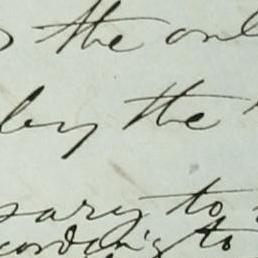 the onl
by the
sary to
cording to